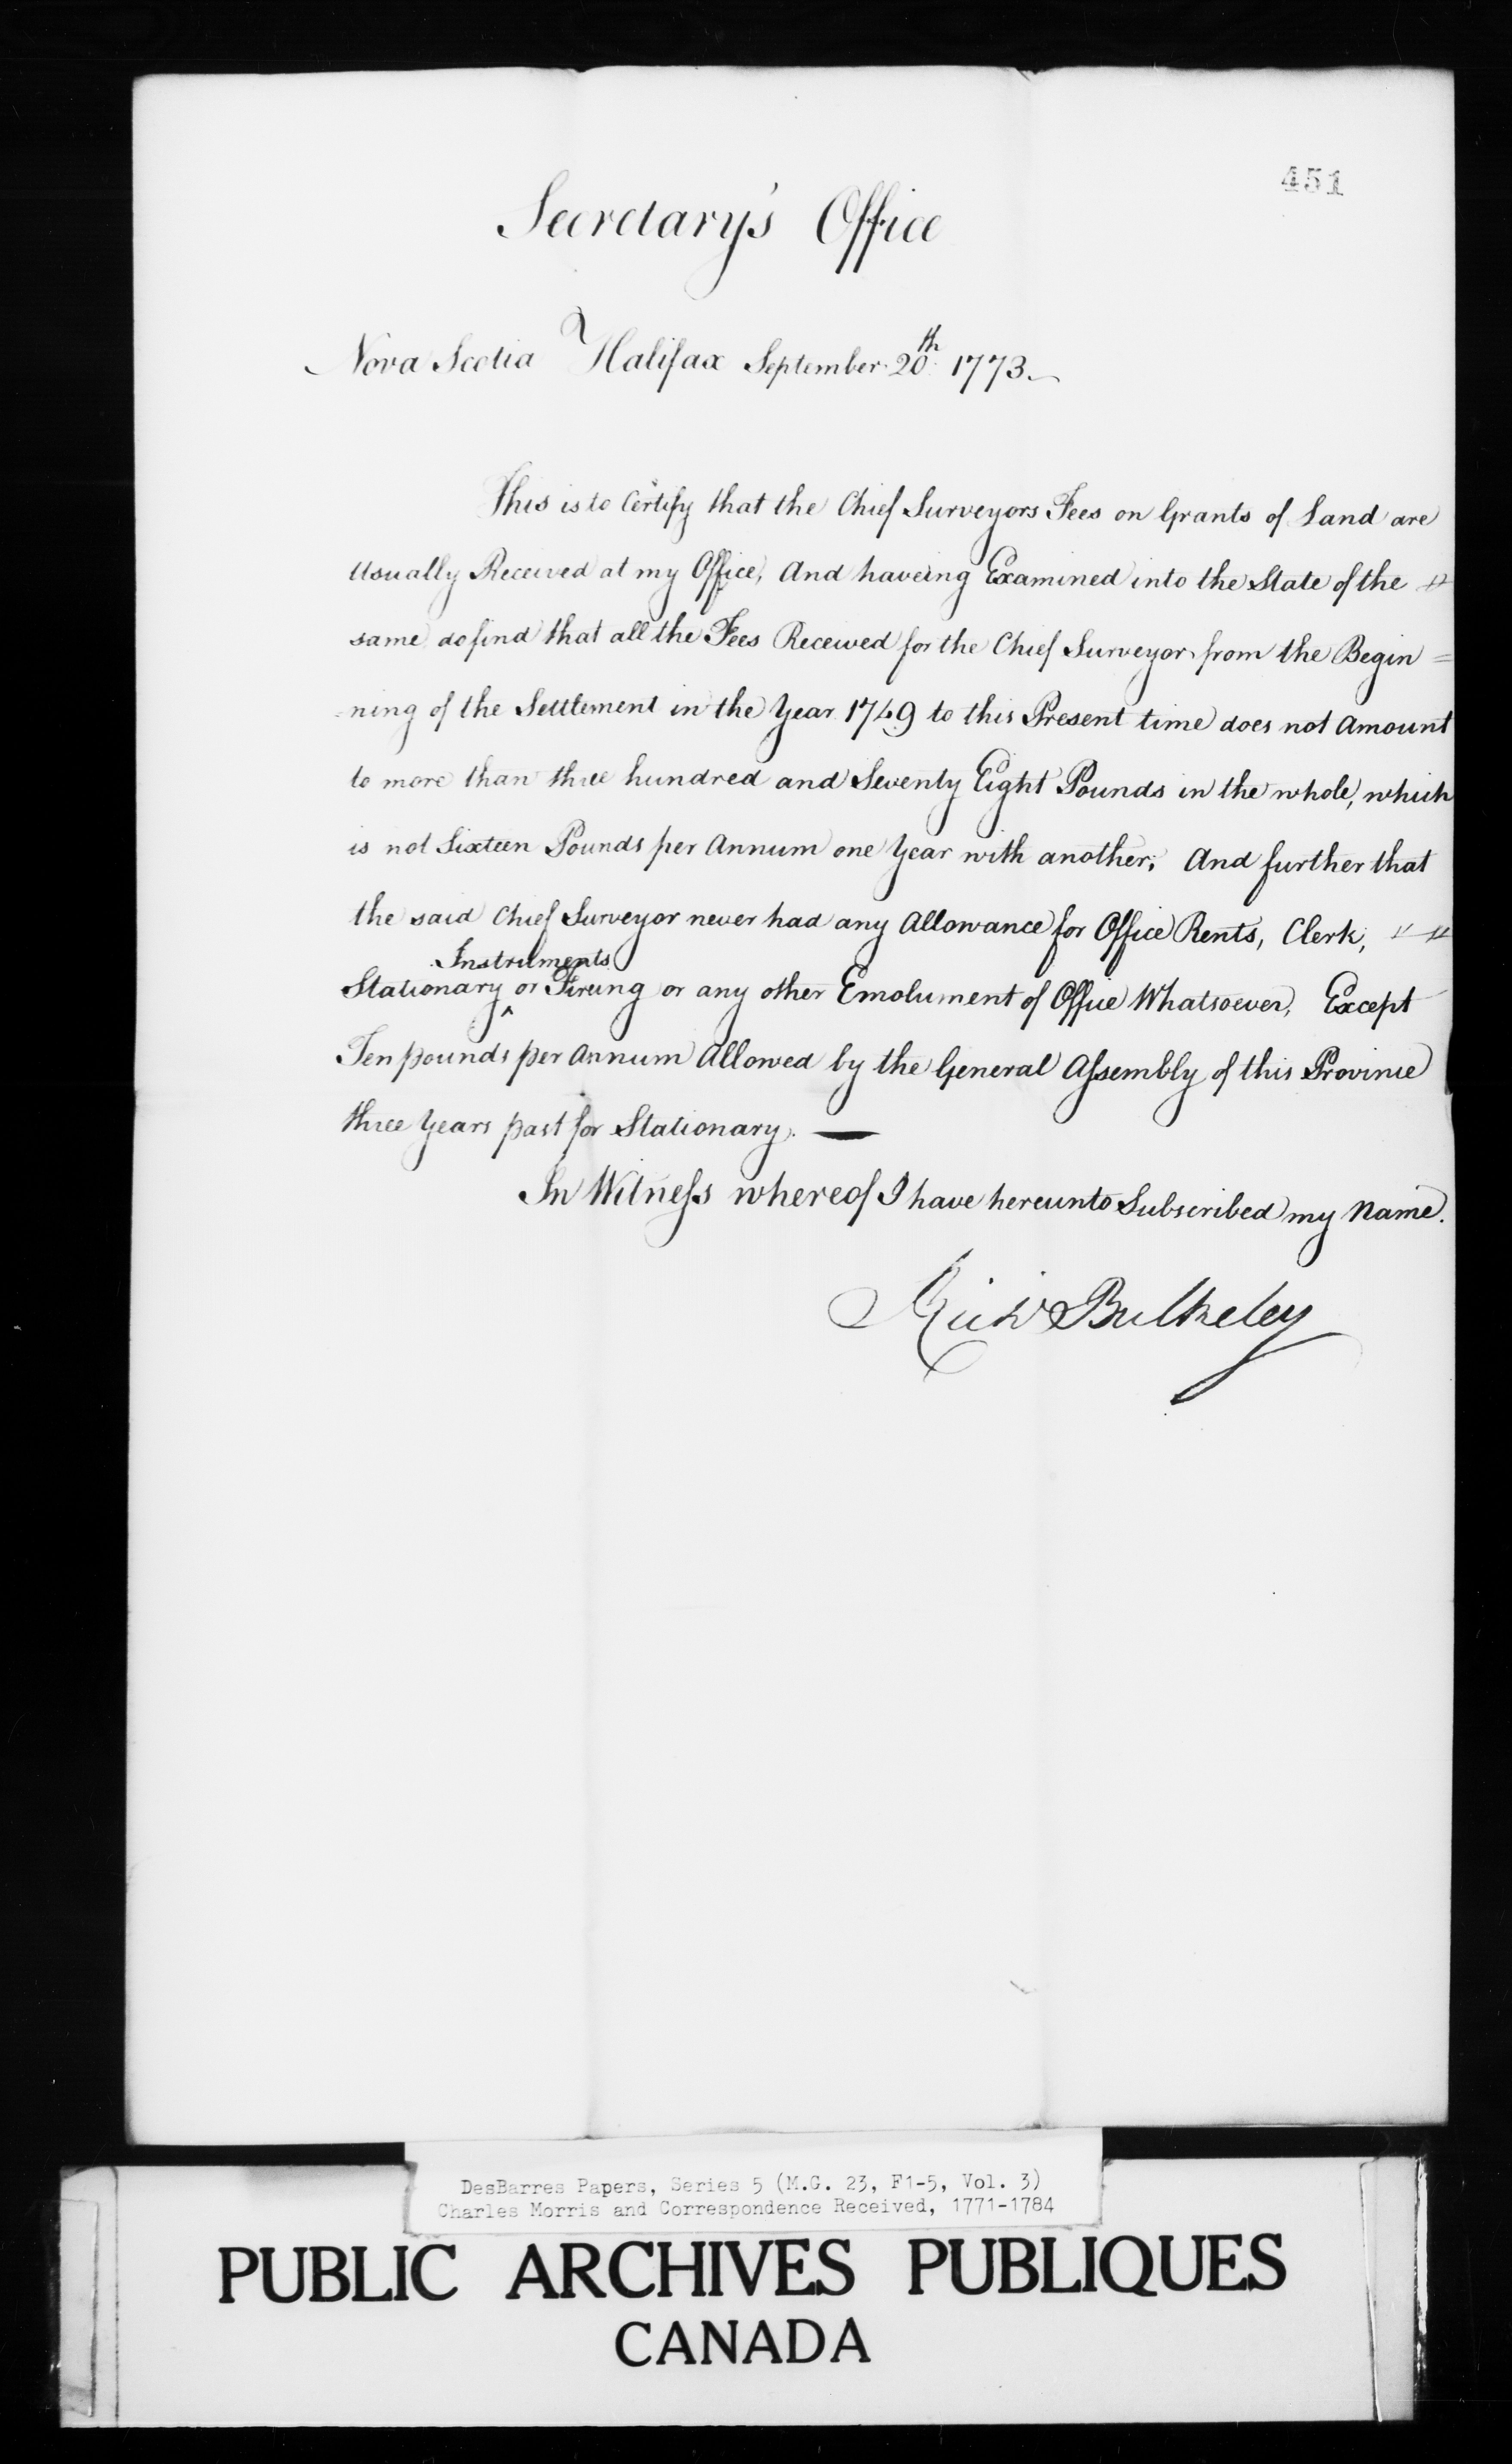 451
Secretary's Office
Nova Scotia Halifax September 20th 1773
This is to Certify that the Chief Surveyors Fees on Grants of Land are
Usually Received at my Office, And haveing Examined into the State of the
same do find that all the Fees Received for the Chief Surveyor from the Begin=
=ning of the Settlement in the Year 1749 to this Present time does not Amount
to more than three hundred and Seventy Eight Pounds in the whole, which
is not Sixteen Pounds per Annum one Year with another; And further that
the said Chief Surveyor never had any Allowance for Office Rents, Clerk,
Instruments
Stationary ^ or Fireing or any other Emolument of Office Whatsoever, Except
Ten pounds per Annum Allowed by the General Assembly of this Province
three Years past for Stationary. —
In Witness whereof I have hereunto Subscribed my Name.
Richd Bulkeley
DesBarres Papers, Series 5 (M.G. 23, F1-5, Vol. 3)
Charles Morris and Correspondence Received, 1771-1784
PUBLIC ARCHIVES PUBLIQUES
CANADA